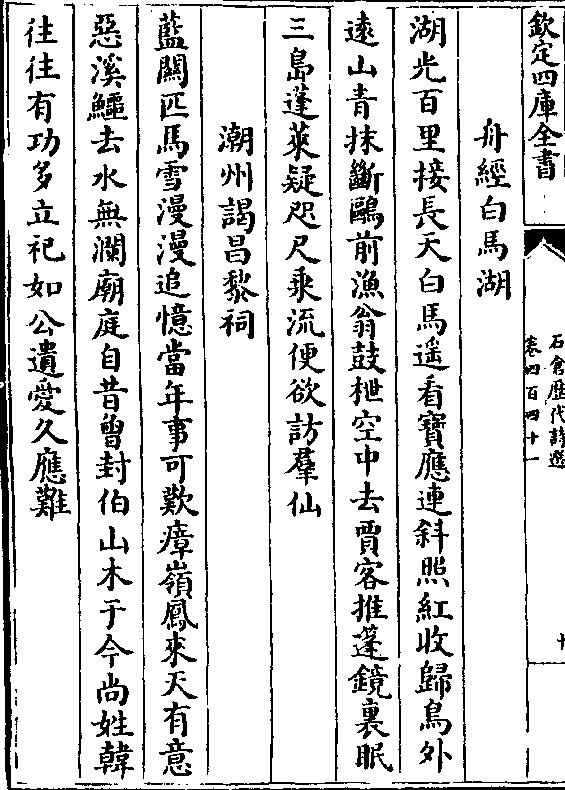 欽定四庫全書
石倉歷代詩選
卷四百四十一
十
舟經白馬湖
湖光百里接長天白馬遥看寶應連斜照紅收歸鳥外
逺山青抹斷鷗前漁翁鼓枻空中去賈客推蓬鏡裏眠
三島蓬萊疑咫尺乘流便欲訪羣仙
潮州謁昌黎祠
藍關匹馬雪漫漫追憶當年事可歎瘴嶺鳳來天有意
惡溪鱷去水無瀾廟庭自昔曾封伯山木于今尚姓韓
往往有功多立祀如公遺愛久應難